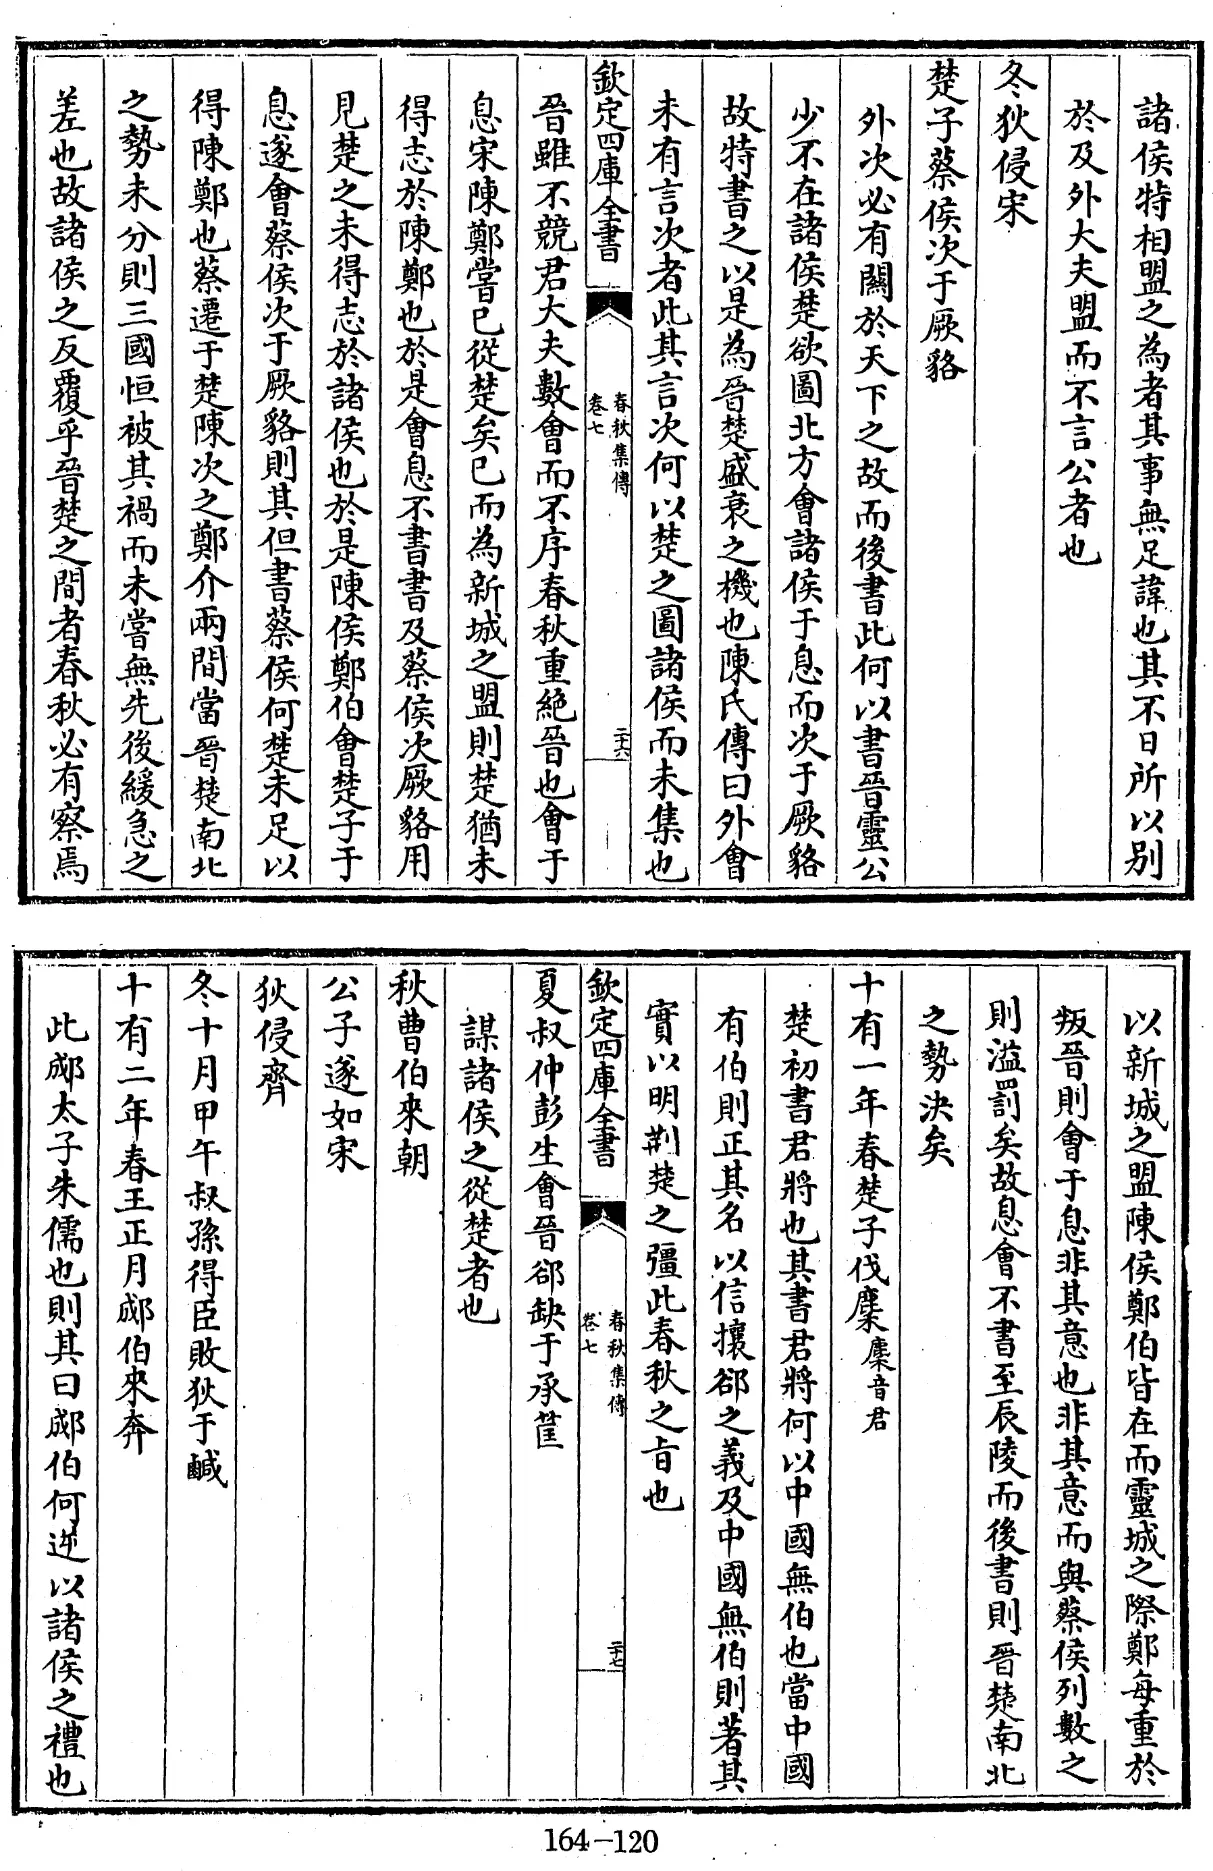 諸侯特相盟之為者其事無足諱也其不日所以别
於及外大夫盟而不言公者也
冬狄侵宋
楚子蔡侯次于厥貉
外次必有關於天下之故而後書此何以書晉靈公
少不在諸侯楚欲圖北方會諸侯于息而次于厥貉
故特書之以是為晉楚盛衰之機也陳氏傳曰外會
未有言次者此其言次何以楚之圖諸侯而未集也
欽定四庫全書
春秋集傳
卷七
二十六
晉雖不競君大夫數會而不序春秋重絶晉也會于
息宋陳鄭嘗已從楚矣已而為新城之盟則楚猶未
得志於陳鄭也於是會息不書書及蔡侯次厥貉用
見楚之未得志於諸侯也於是陳侯鄭伯會楚子于
息遂會蔡侯次于厥貉則其但書蔡侯何楚未足以
得陳鄭也蔡遷于楚陳次之鄭介兩間當晉楚南北
之勢未分則三國恒被其禍而未嘗無先後緩急之
差也故諸侯之反覆乎晉楚之間者春秋必有察焉
以新城之盟陳侯鄭伯皆在而靈城之際鄭每重於
叛晉則會于息非其意也非其意而與蔡侯列數之
則溢罰矣故息會不書至辰陵而後書則晉楚南北
之勢決矣
十有一年春楚子伐麇麇音君
楚初書君將也其書君將何以中國無伯也當中國
有伯則正其名以信攘郤之義及中國無伯則著其
實以明荆楚之彊此春秋之㫖也
欽定四庫全書
春秋集傳
卷七
二十七
夏叔仲彭生會晉郤缺于承筐
謀諸侯之從楚者也
秋曹伯來朝
公子遂如宋
狄侵齊
冬十月甲午叔孫得臣敗狄于鹹
十有二年春王正月郕伯來奔
此郕太子朱儒也則其曰郕伯何逆以諸侯之禮也
164-120